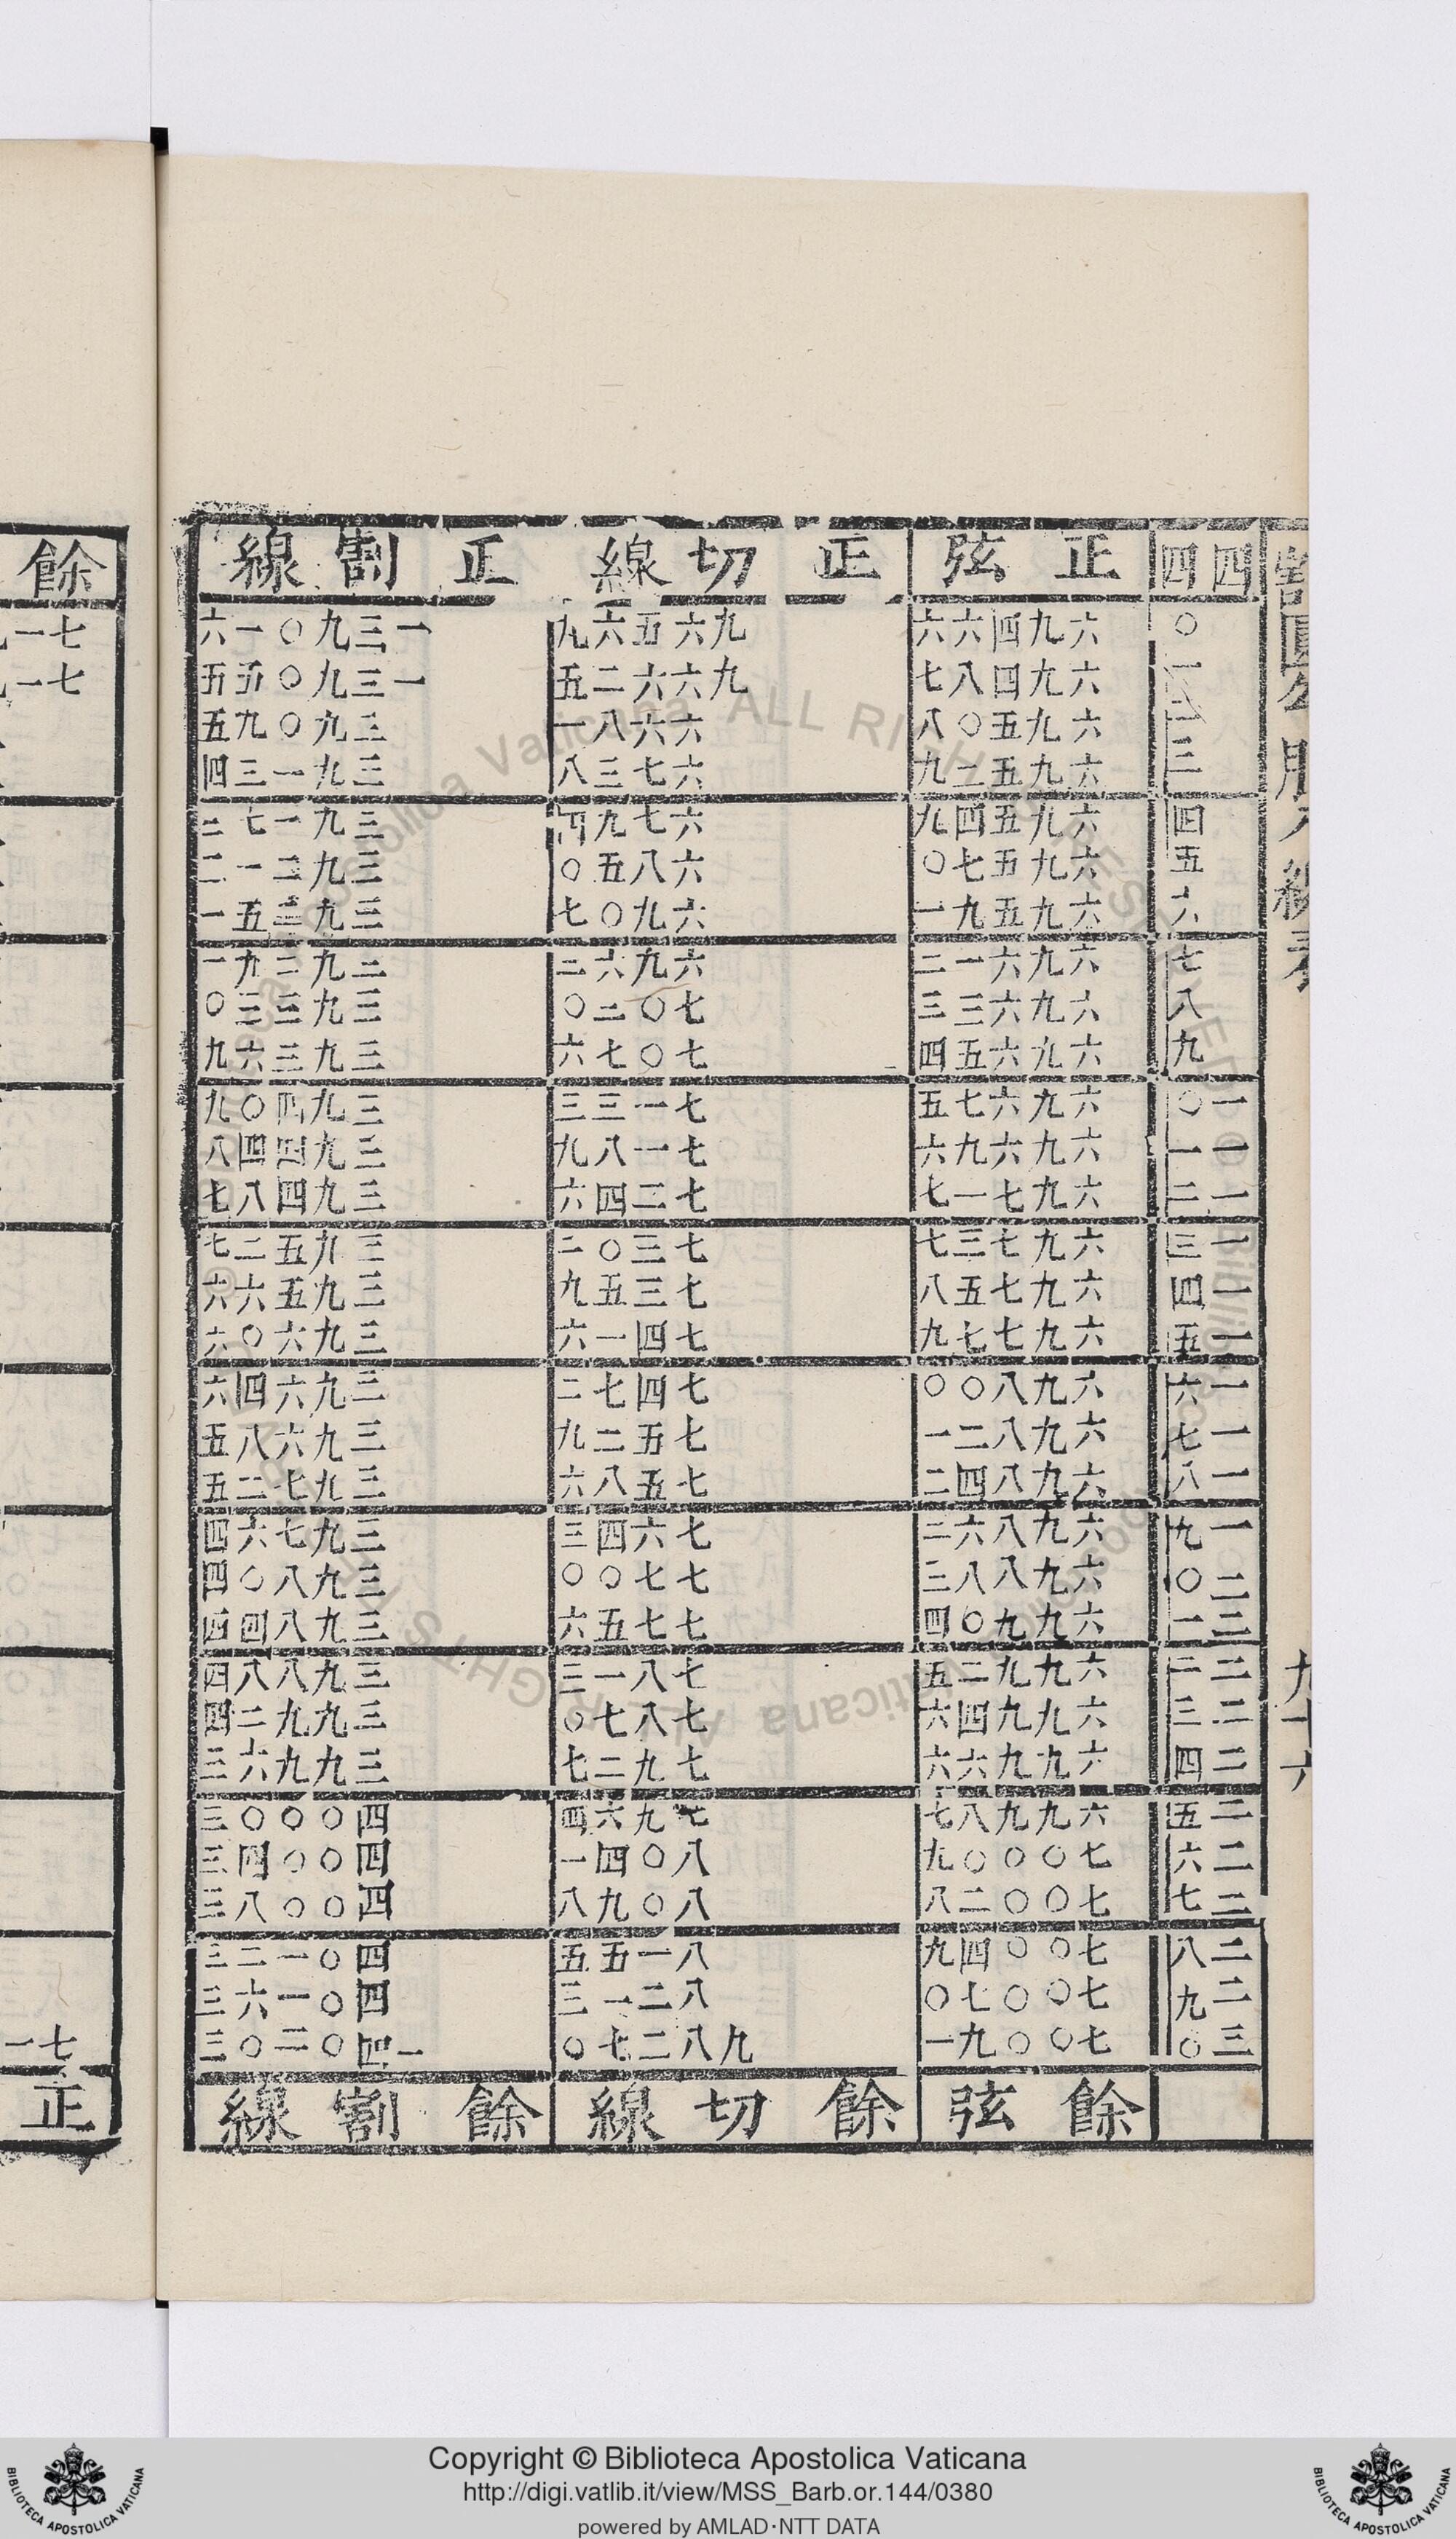 割圓勾股八線表
九十六
四四 正弦 正切線 正割線
〇 六九四六六 九六五六九 一三九〇一六
一 六九四八七 九六六二五 一三九〇五五
二 六九五〇八 六六八一 三九〇九五
三 六九五二九 六七三八 三九一三四
四 六九五四九 六七九四 三九一七三
五 六九五七〇 六八五〇 三九二一二
六 六九五九一 六九〇七 三九二五一
七 六九六一二 六九六二 三九二九一
八 六九六三三 七〇二〇 三九三三〇
九 六九六五四 七〇七六 三九三六九
一〇 六九六七五 七一三三 三九四〇九
一一 六九六九六 七一八九 三九四四八
一二 六九七一七 七二四六 三九四八七
一三 六九七三七 七三〇二 三九五二七
一四 六九七五八 七三五九 三九五六六
一五 六九七七九 七四一六 三九六〇六
一六 六九八〇〇 七四七二 三九六四六
一七 六九八二一 七五二九 三九六八五
一八 六九八四二 七五八六 三九七二五
一九 六九八六二 七六四三 三九七六四
二〇 六九八八三 七七〇〇 三九八〇四
二一 六九九〇四 七七五六 三九八四四
二二 六九九二五 七八一三 三九八八四
二三 六九九四六 七八七〇 三九九二四
二四 六九九六六 七九二七 三九九六三
二五 六九九八七 七九六四 四〇〇〇三
二六 七〇〇〇九 八〇四一 四〇〇四三
二七 七〇〇二八 八〇九八 四〇〇八三
二八 七〇〇四九 八一五五 四〇一二三
二九 七〇〇七〇 八二一三 四〇一六三
三〇 七〇〇九一 九八二七〇 一四〇二〇三
餘弦 餘切線 餘割線
餘
七一
七一
七一
正
Copyright © Biblioteca Apostolica Vaticana
http://digi.vatlib.it/view/MSS_Barb.or.144/0380
powered by AMLAD·NTT DATA
BIBLIOTECA APOSTOLICA VATICANA
BIBLIOTECA APOSTOLICA VATICANA